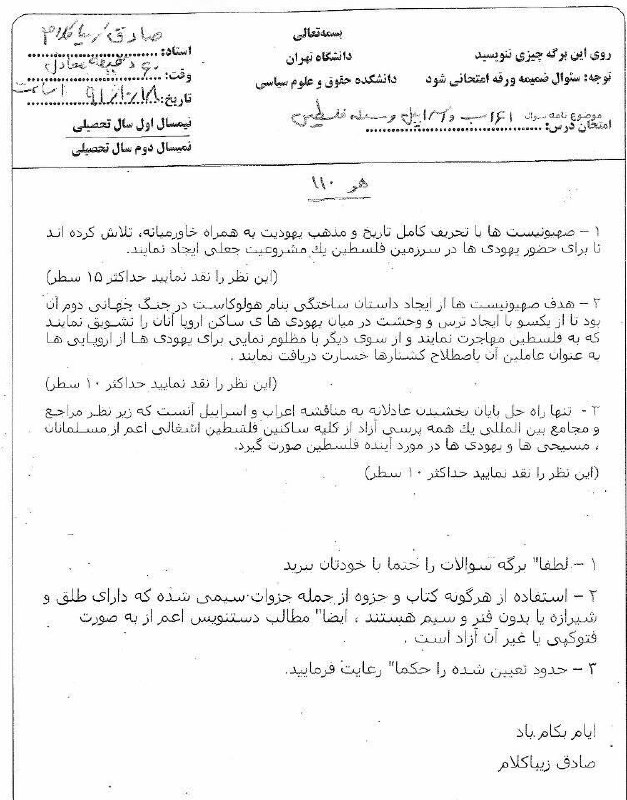 بسمه‌تعالی
دانشگاه تهران
دانشکده حقوق و علوم سیاسی
روی این برگه چیزی ننویسید
توجه: سئوال ضمیمه ورقه امتحانی شود
استاد: صادق زیباکلام
وقت: ۶۰ دقیقه معادل ۱ ساعت
تاریخ: ۹۱/۱۰/۱۸
نیمسال اول سال تحصیلی
نمیسال دوم سال تحصیلی
موضوع نامه سوال
امتحان درس: اعراب و اسراییل و مسئله فلسطین
هو ۱۱۰
۱ – صهیونیست ها با تحریف کامل تاریخ و مذهب یهودیت به همراه خاورمیانه، تلاش کرده اند
تا برای حضور یهودی ها در سرزمین فلسطین یك مشروعیت جعلی ایجاد نمایند.
(این نظر را نقد نمایید حداکثر ۱۵ سطر)
۲ – هدف صهیونیست ها از ایجاد داستان ساختگی بنام هولوکاست در جنگ جهانی دوم آن
بود تا از یکسو با ایجاد ترس و وحشت در میان یهودی ها ی ساکن اروپا آنان را تشویق نمایند
که به فلسطین مهاجرت نمایند و از سوی دیگر با مظلوم نمایی برای یهودی ها از اروپایی ها
به عنوان عاملین آن باصطلاح کشتارها خسارت دریافت نمایند .
(این نظر را نقد نمایید حداکثر ۱۰ سطر)
۳ - تنها راه حل پایان بخشیدن عادلانه به مناقشه اعراب و اسراییل آنست که زیر نظر مراجع
و مجامع بین المللی یك همه پرسی آزاد از کلیه ساکنین فلسطین اشغالی اعم از مسلمانان
، مسیحی ها و یهودی ها در مورد آینده فلسطین صورت گیرد.
(این نظر را نقد نمایید حداکثر ۱۰ سطر)
۱ – لطفا" برگه سوالات را حتما با خودتان ببرید
۲ – استفاده از هرگونه کتاب و جزوه از جمله جزوات سیمی شده که دارای طلق و
شیرازه یا بدون فنر و سیم هستند ، ایضا" مطالب دستنویس اعم از به صورت
فتوکپی یا غیر آن آزاد است .
۳ – حدود تعیین شده را حکما" رعایت فرمایید.
ایام بکام باد
صادق زیباکلام